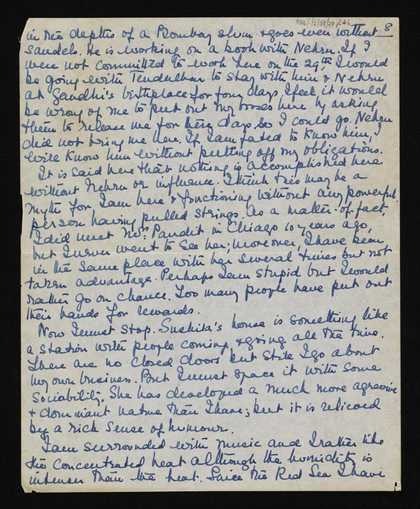 8
in the depths of a Bombay slum & goes even without
sandals. He is working on a book with Nehru. If I
were not committed to work here on the 29th I would
be going with Tendulkar to stay with him & Nehru
at Gandhi's birthplace for four days. I feel it would
be wrong of me to put out my bosses here by asking
them to release me for these days so I could go. Nehru
did not bring me here. If I am fated to know him, I
will know him without putting off my obligations.
It is said here that nothing is accomplished here
without Nehru or influence. I think this may be a
myth for I am here & functioning without any powerful
person having pulled strings. As a matter of fact,
I did meet Mme Pandit in Chicago 10 years ago,
but I never went to see her; moreover, I have been
in the same place with her several times but not
taken advantage. Perhaps I am stupid but I would
rather go on chance. Too many people have put out
their hands for rewards.
Now I must stop. Suchita's house is something like
a station with people coming & going all the time.
There are no closed doors but still I go about
my own business. But I must space it with some
sociability. She has developed a much more agressive
& dominant nature than I have; but it is relieved
by a rich sense of humour.
I am surrounded with music and I rather like
the concentrated heat although the humidity is
intenser than the heat. Since the Red Sea I have